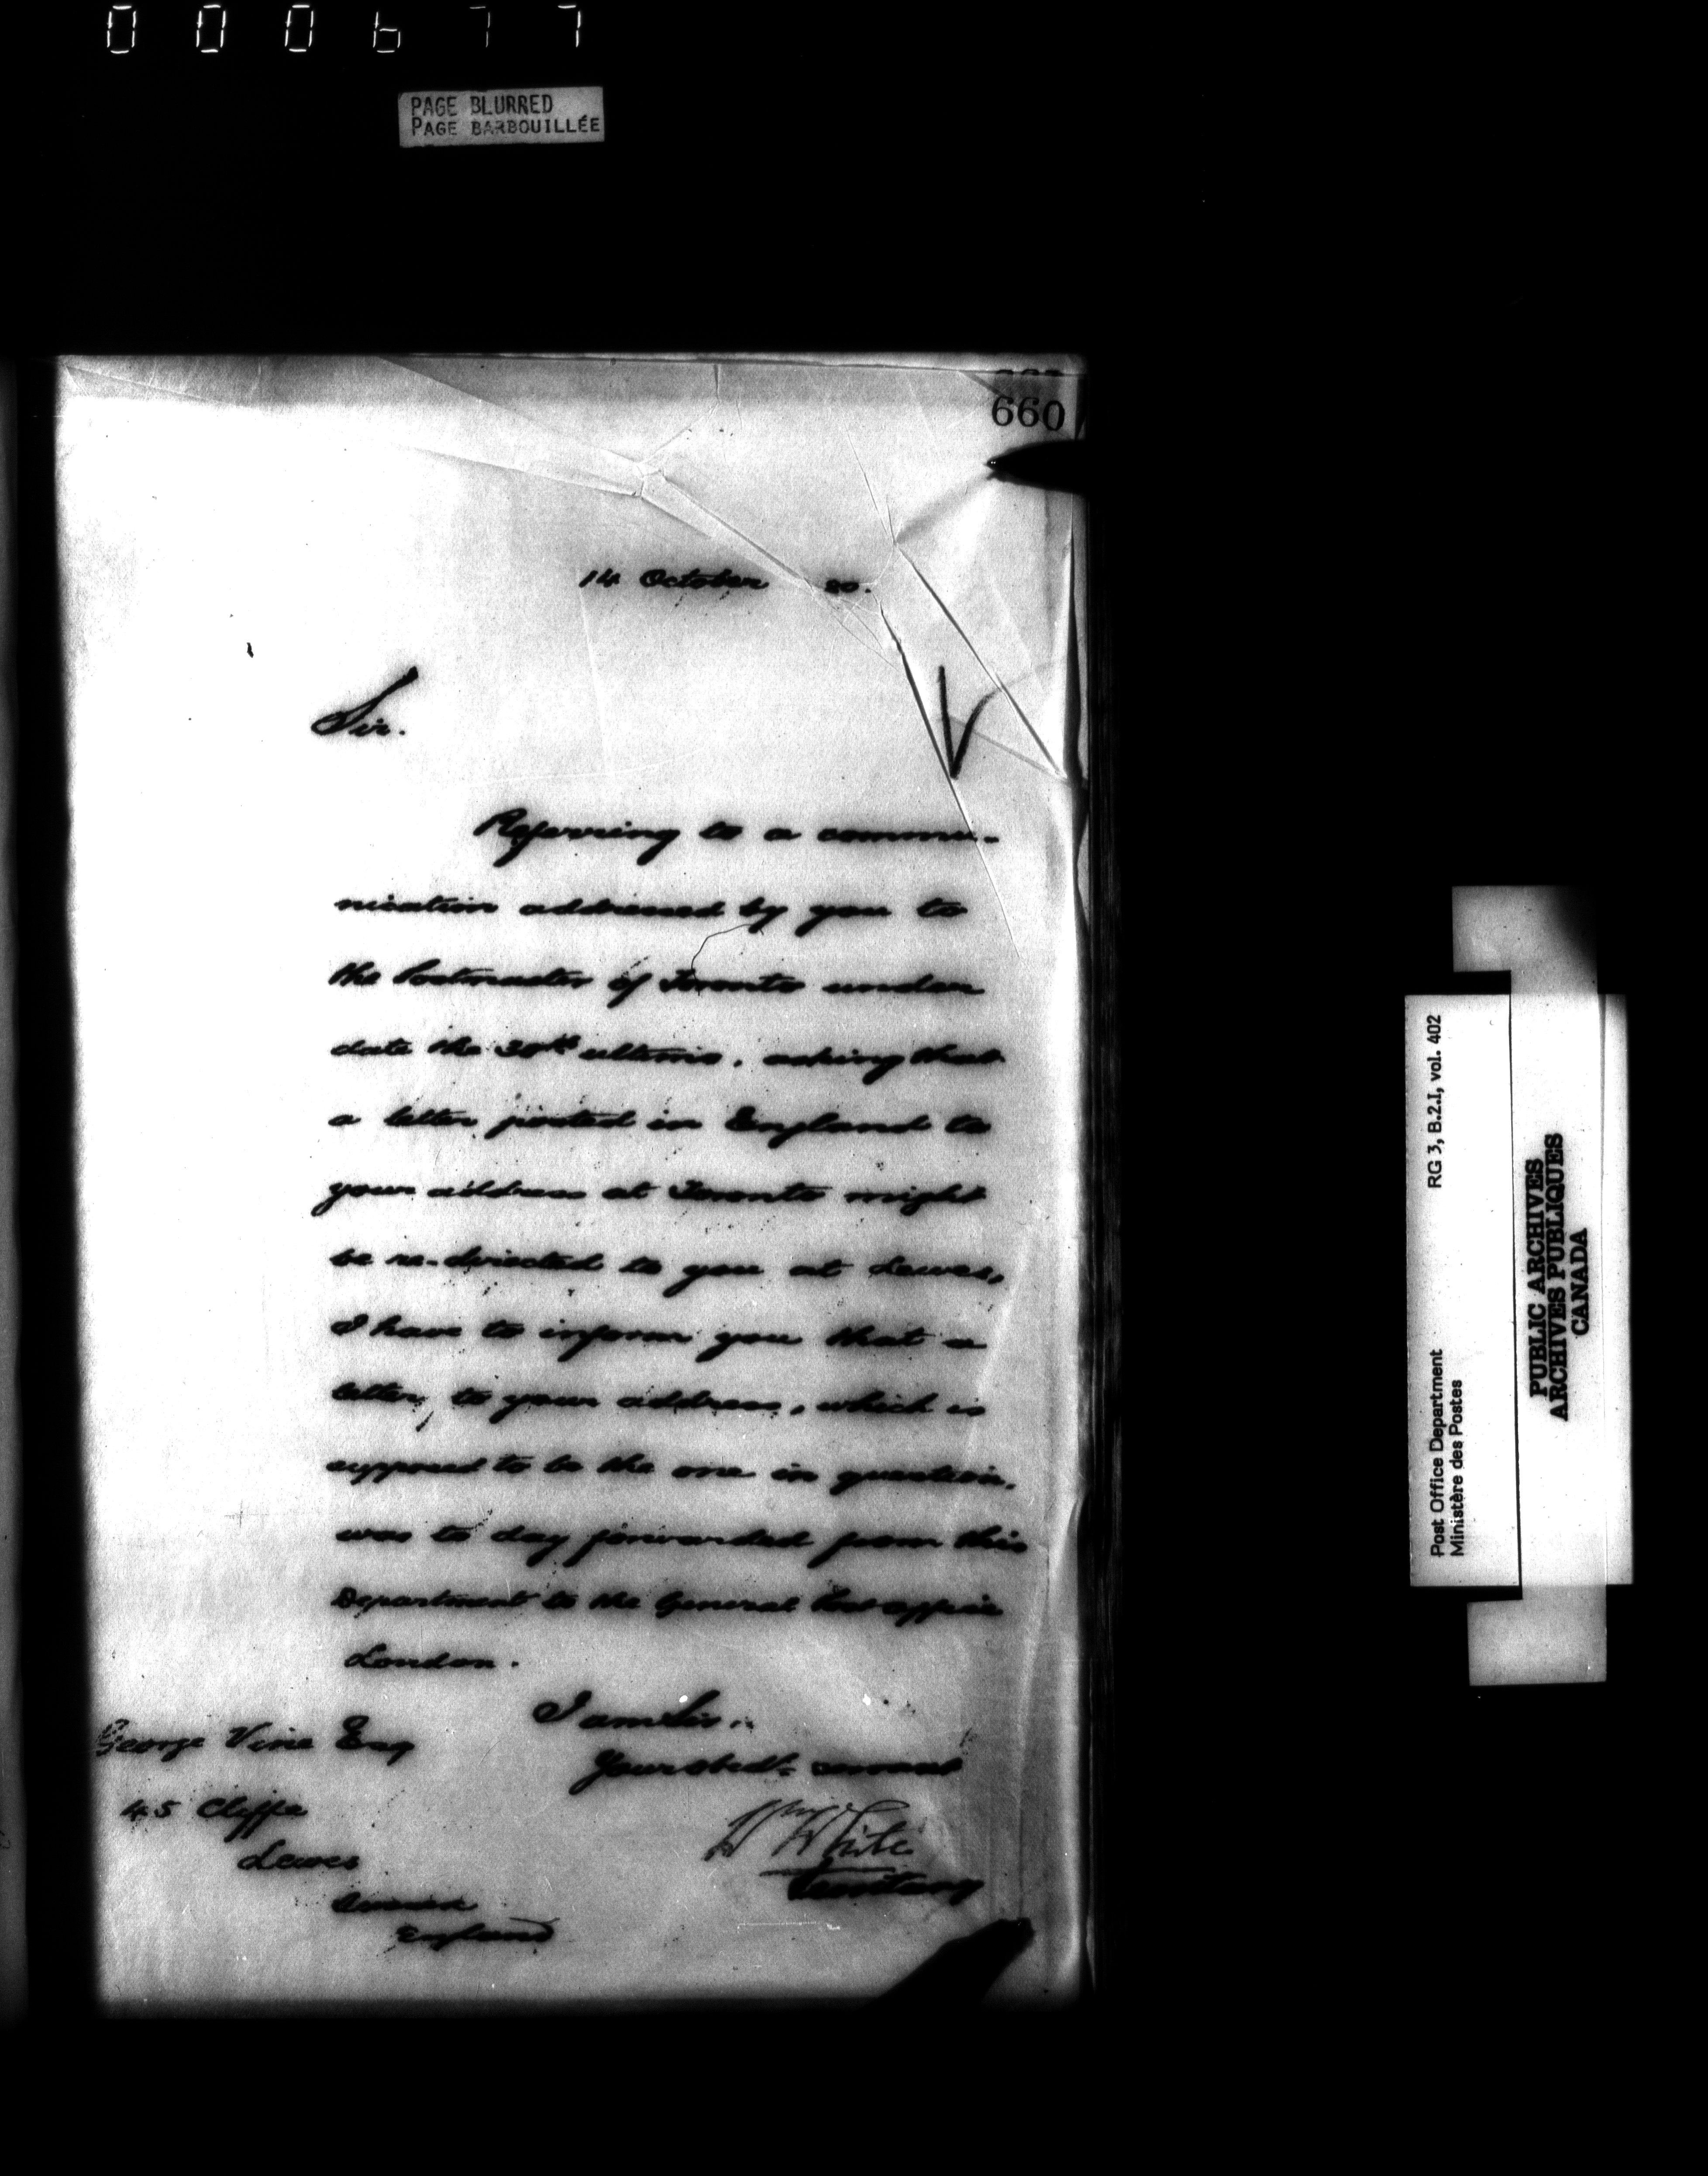 000677
PAGE BLURRED
PAGE BARBOUILLÉE
660
14 October 80.
Sir.
Referring to a commu-
nication addressed by you to
the Postmaster of Toronto under
date the 30th ultimo, asking that
a letter posted in England to
your address at Toronto might
be re-directed to you at Lewes,
I have to inform you that a
letter, to your address, which is
supposed to be the one in question,
was to day forwarded from this
Department to the General Post office
London.
I am Sir..
Your obedt. servant
Wm White
Secretary
George Vine Esq
45 Cliffe
Lewes
England
Post Office Department RG 3, B.2.I, vol. 402
Ministère des Postes
PUBLIC ARCHIVES
ARCHIVES PUBLIQUES
CANADA